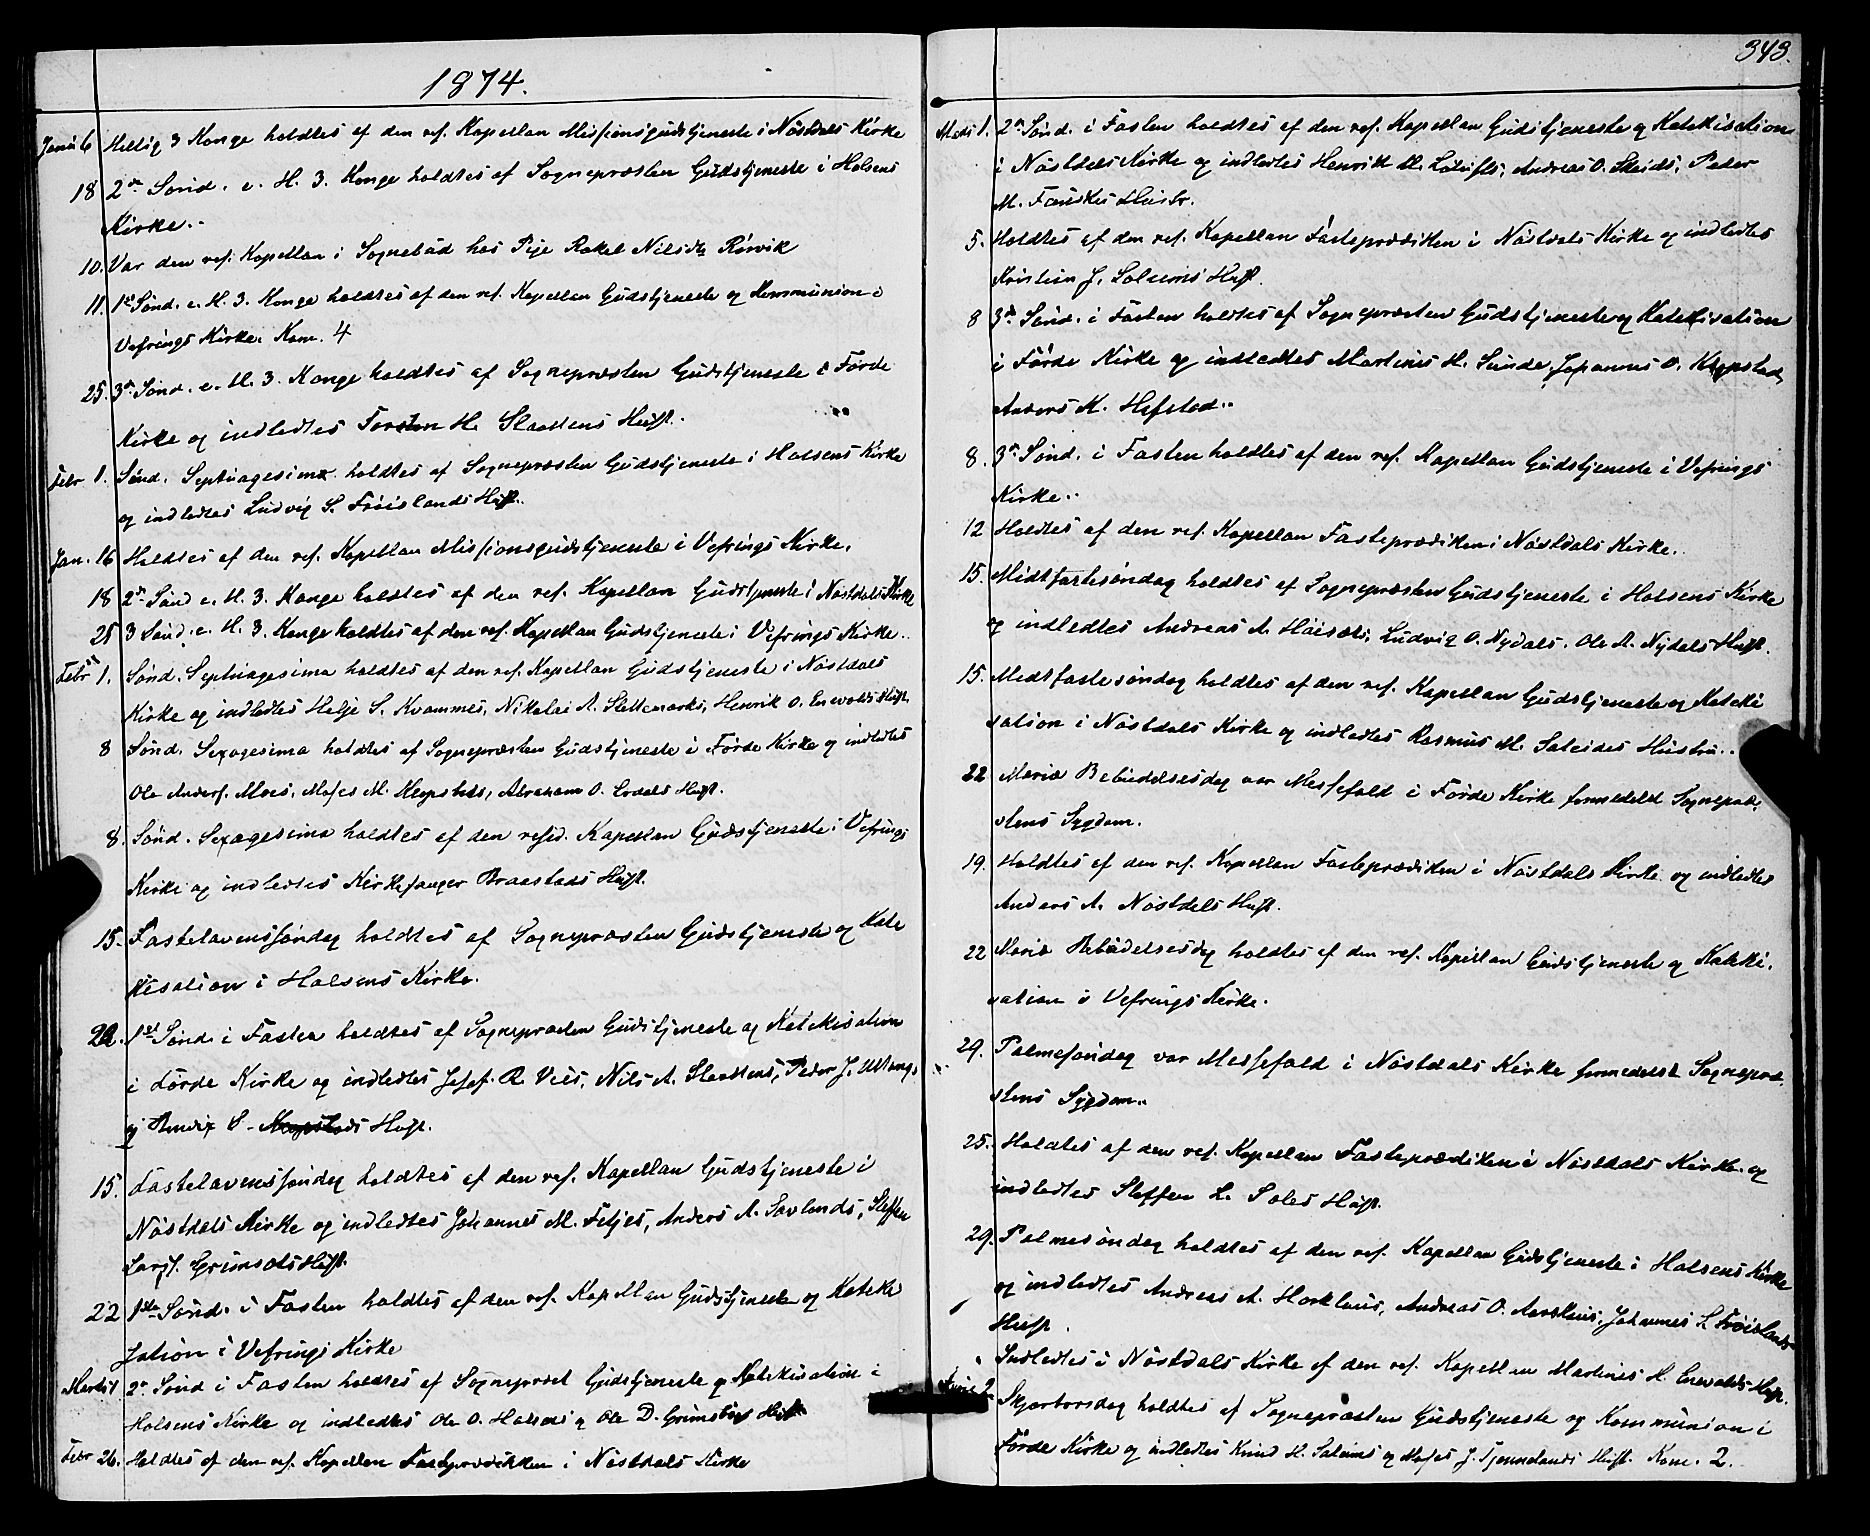 1874.
Januar 6 Hellig 3 Konge holdtes af den res. Kapellan Missionsgudstjeneste i Nöstdals Kirke
18 2den Sönd. e. H. 3. Konge holdtes af Sognepræsten Gudstjeneste i Holsens
Kirke.
10. Var den res. Kapellan i Sognebud hos Pige Rakel Nilsdtr Rörvik
11. 1ste Sönd. e. H. 3. Konge holdtes af den res. Kapellan Gudstjeneste og Kommunion i
Vefrings Kirke. Kom. 4
25. 3die Sönd. e. H. 3. Konge holdtes af Sognepræsten Gudstjeneste i Förde
Kirke og indledtes Torsten H. Slaattens Hust.
Febr 1. Sönd. Septuagesima holdtes af Sognepræsten Gudstjeneste i Holsens Kirke
og indledtes Ludvig S. Fröislands Hust.
Jan. 16 Holdtes af den res. Kapellan Missionsgudstjeneste i Vefrings Kirke.
18 2den Sönd e. H. 3. Konge holdtes af den res. Kapellan Gudstjeneste i Nöstdals Kirke
25 3 Sönd. e. H. 3. Konge holdtes af den res. Kapellan Gudstjeneste i Vefrings Kirke.
Febr 1. Sönd. Septuagesima holdtes af den res. Kapellan Gudstjeneste i Nöstdals
Kirke og indledtes Helje S. Kvammes, Nikolai A. Slettemarks, Henrik O. Envolds Hust.
8 Sönd. Sexagesima holdtes af Sognepræsten Gudstjeneste i Förde Kirke og indledtes
Ole Anders. Moes, Moses M. Klopstads, Abraham O. Erdals Hust.
8. Sönd. Sexagesima holdtes af den resid. Kapellan Gudstjeneste i Vefrings
Kirke og indledtes Kirkesanger Braastads Hust.
15. Fastelavenssöndag holdtes af Sognepræsten Gudstjeneste og Kate
kisation i Holsens Kirke.
22. 1ste Sönd. i Fasten holdtes af Sognepræsten Gudstjeneste og Katekisation
i Förde Kirke og indledtes Josef R. Vies, Nils A. Slaattens, Peder J.
og S. Hust.
15. Fastelavenssöndag holdtes af den res. Kapellan Gudstjeneste i
Nöstdals Kirke og indledtes Johannes M. Fitjes, Anders A. Savlands, Steffen
Lars. Grimsets Hust.
22 1ste Sönd. i Fasten holdtes af den res. Kapellan Gudstjeneste og Kateki
sation i Vefrings Kirke
Marts 1 2den Sönd i Fasten holdtes af Sognepræst Gudstjeneste og Katekisation i
Holsens Kirke og indledtes Ole O. Holsens og Ole D. Grimsbös Hust.
Febr 26. Holdtes af den res. Kapellan Fasteprædikken i Nöstdals Kirke
343.
Marts 1. 2den Sönd. i Fasten holdtes af den res. Kapellan Gudstjeneste og Katekisation
i Nöstdals Kirke og indledtes Henrik M. Löktofts, Andreas O. Skeids, Peder
M. Fauskes Hustr.
5. Holdtes af den res. Kapellan Fasteprædiken i Nöstdals Kirke og indledtes
Kristian J. Solheims Hust.
8 3die Sönd. i Fasten holdtes af Sognepræsten Gudstjeneste og Katekisation
i Förde Kirke og indledtes Martinus H. Sunde, Johannes O. Klopstad,
Anders M. Hafstad.
8. 3die Sönd. i Fasten holdtes af den res. Kapellan Gudstjeneste i Vefrings
Kirke.
12 Holdtes af den res. Kapellan Fasteprædiken i Nöstdals Kirke.
15. Midtfastesöndag holdtes af Sognepræsten Gudstjeneste i Holsens Kirke
og indledtes Andreas A. Höisæts, Ludvig O. Nydals, Ole A. Nydals Hust.
15. Midtfastesöndag holdtes af den res. Kapellan Gudstjeneste og Kateki
sation i Nöstdals Kirke og indledtes Rasmus M. Soleides Hustru.
22 Mariæ Bebudelsesdag var Messefald i Förde Kirke formedelst Sognepræ-
stens Sygdom.
19. Holdtes af den res. Kapellan Fasteprædiken i Nöstdals Kirke og indledtes
Anders A. Nöstdals Hust.
22 Mariæ Bebudelsesdag holdtes af den res. Kapellan Gudstjeneste og Kateki-
sation i Vefrings Kirke.
29. Palmesöndag var Messefald i Nöstdals Kirke formedelst Sognepræ-
stens Sygdom.
25. Holdtes af den res. Kapellan Fasteprædiken i Nöstdals Kirke og
indledtes Steffen L. Soles Hust.
29. Palmesöndag holdtes af den res. Kapellan Gudstjeneste i Holsens Kirke
og indledtes Andreas A. Horkleius, Andreas O. Aarskeius, Johannes L. Fröislands
Hust.
Indledtes i Nöstdals Kirke af den res. Kapellan Martinus H. Envolds Hust.
2 Skjærtorsdag holdtes af Sognepræsten Gudstjeneste og Kommunion i
Förde Kirke og indledtes Knud H. Solheims og Moses J. Tjønnelands Hust. Kom. 2.